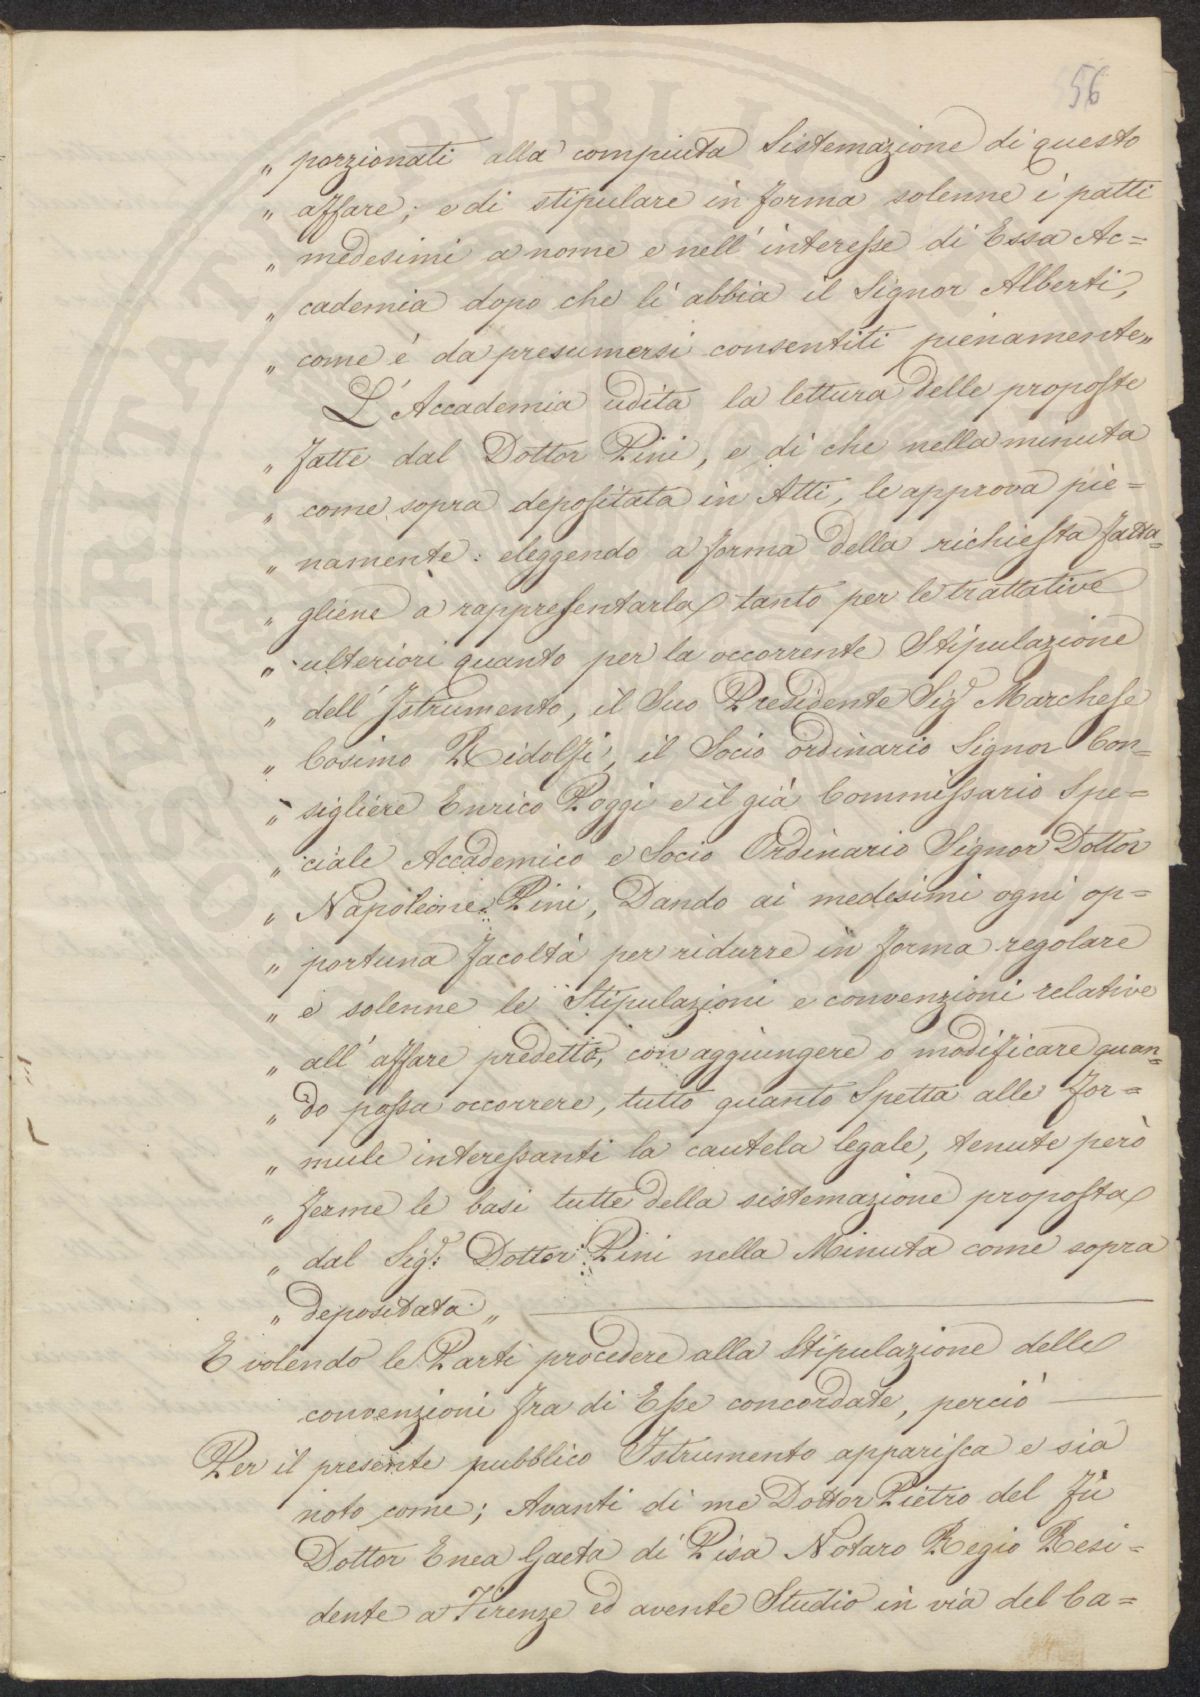 56
„ porzionati alla compiuta Sistemazione di questo
„ affare; e di stipulare in forma solenne i patti
„ medesimi a nome e nell' interesse di Essa Ac=
„ cademia dopo che li abbia il Signor Alberti,
„ come è da presumersi consentiti pienamente„
L' Accademia udita la lettura delle proposte
„ fatte dal Dottor Pini, e di che nella minuta
„ come sopra depositata in Atti, le approva pie=
„ namente: eleggendo a forma della richiesta fatta=
„ gliene a rappresentarla tanto per le trattative
„ ulteriori quanto per la occorrente Stipulazione
„ dell' Istrumento, il Suo Presidente Sig.r Marchese
„ Cosimo Ridolfi, il Socio ordinario Signor Con=
„ sigliere Enrico Poggi e il già Commissario Spe=
„ ciale Accademico e Socio Ordinario Signor Dottor
„ Napoleone Pini, Dando ai medesimi ogni op=
„ portuna facoltà per ridurre in forma regolare
„ e solenne le Stipulazioni e convenzioni relative
„ all' affare predetto, con aggiungere o modificare quan=
„ do possa occorrere, tutto quanto Spetta alle for=
„ mule interessanti la cautela legale, tenute però
„ ferme le basi tutte della sistemazione proposta
„ dal Sig.r Dottor Pini nella Minuta come sopra
„ depositata „
E volendo le Parti procedere alla Stipulazione delle
convenzioni fra di Esse concordate, perciò
Per il presente pubblico Istrumento apparisca e sia
noto come; Avanti di me Dottor Pietro del fù
Dottor Enea Gaeta di Pisa Notaro Regio Resi=
dente a Firenze ed avente Studio in via del Ca=